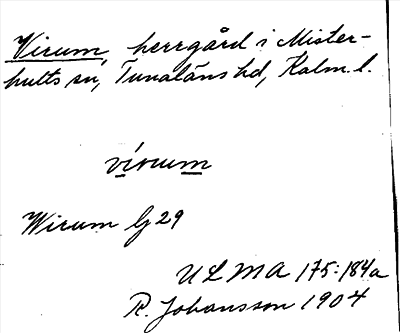 Virum, herrgård i Mister-
hults sn, Tunaläns hd, Kalm. l.
vírum
Wirum lj 29
ULMA 175:184a
R. Johansson 1904